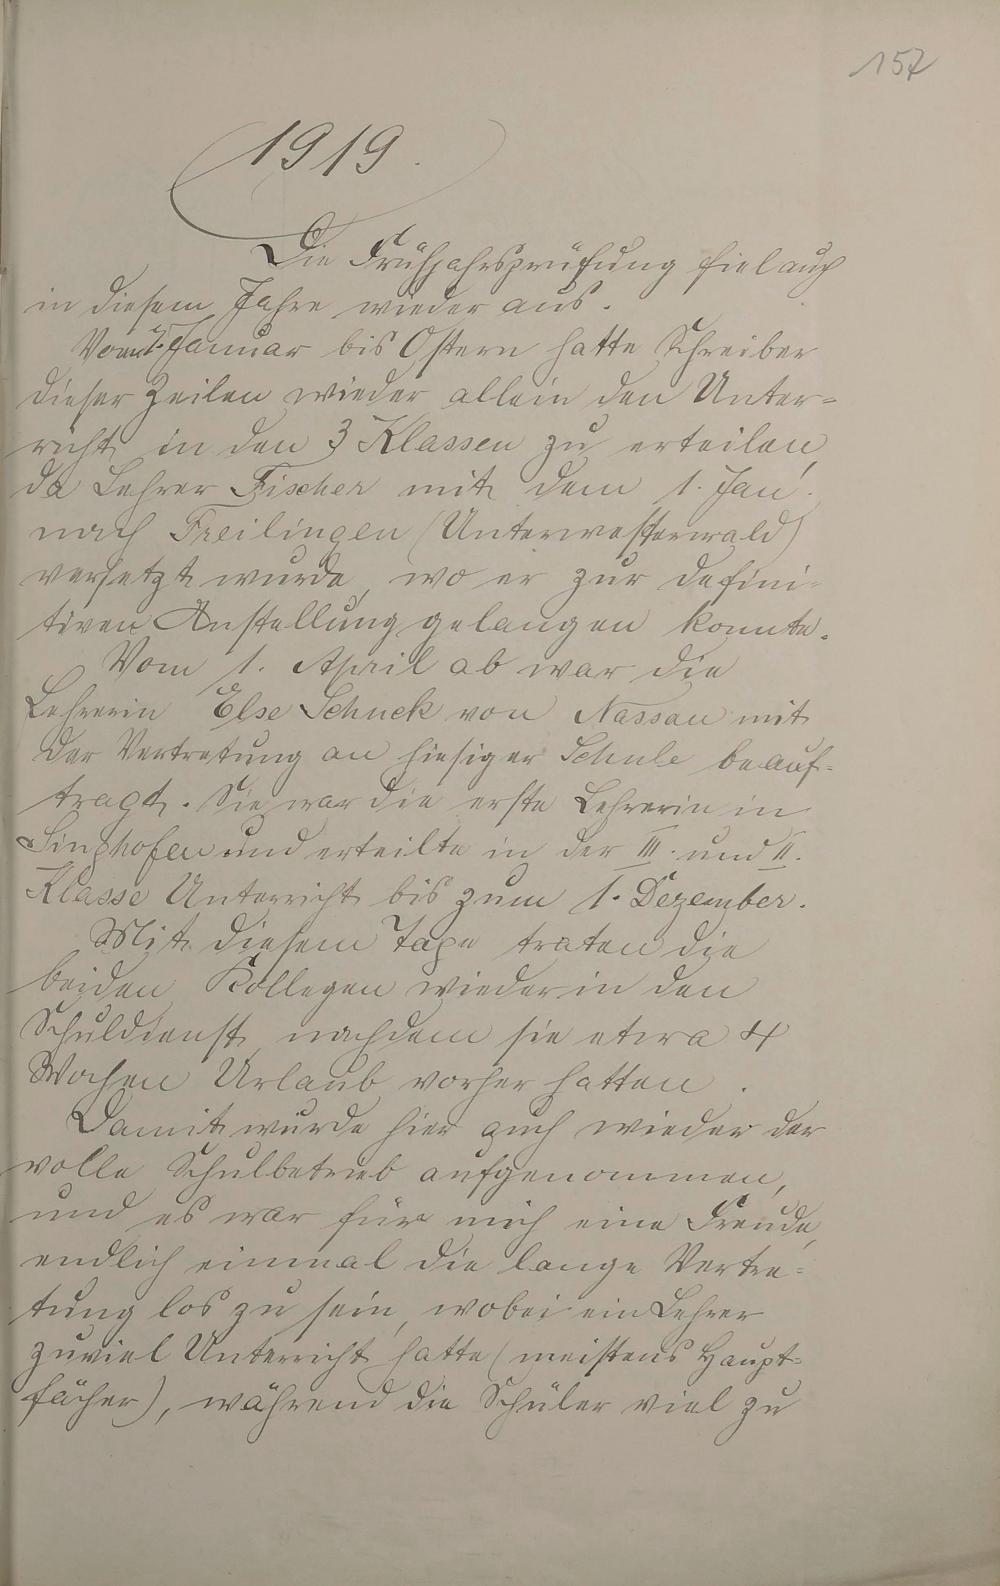 157
1919.
Die Frühjahrsprüfung fiel auch
in diesem Jahre wieder aus.
Vom 1. Januar bis Ostern hatte Schreiber
dieser Zeilen wieder allein den Unter-
richt in den 3 Klassen zu erteilen,
da Lehrer Fischer mit dem 1. Jan.
nach Freilingen (Unterwesterwald)
versetzt wurde, wo er zur defini-
tiven Anstellung gelangen konnte.
Vom 1. April ab war die
Lehrerin Else Schuck von Nassau mit
der Vertretung an hiesiger Schule beauf-
tragt. Sie war die erste Lehrerin in
Singhofen und erteilte in der III. und II.
Klasse Unterricht bis zum 1. Dezember.
Mit diesem Tage traten die
beiden Kollegen wieder in den
Schuldienst, nachdem sie etwa 4
Wochen Urlaub vorher hatten.
Damit wurde hier auch wieder der
volle Schulbetrieb aufgenommen,
und es war für mich eine Freude,
endlich einmal die lange Vertre-
tung los zu sein, wobei ein Lehrer
zuviel Unterricht hatte (meistens Haupt-
fächer), während die Schüler viel zu